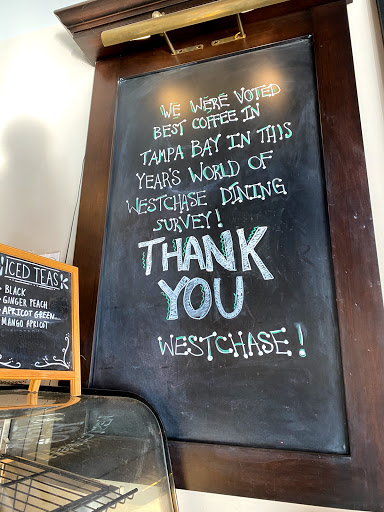 WE WERE VOTED
BEST COFFEE IN
TAMPA BAY IN THIS
YEAR'S WORLD OF
WESTCHASE DINING
SURVEY!
THANK
YOU
WESTCHASE!
ICED TEAS
- BLACK
- GINGER PEACH
- APRICOT GREEN
- MANGO APRICOT